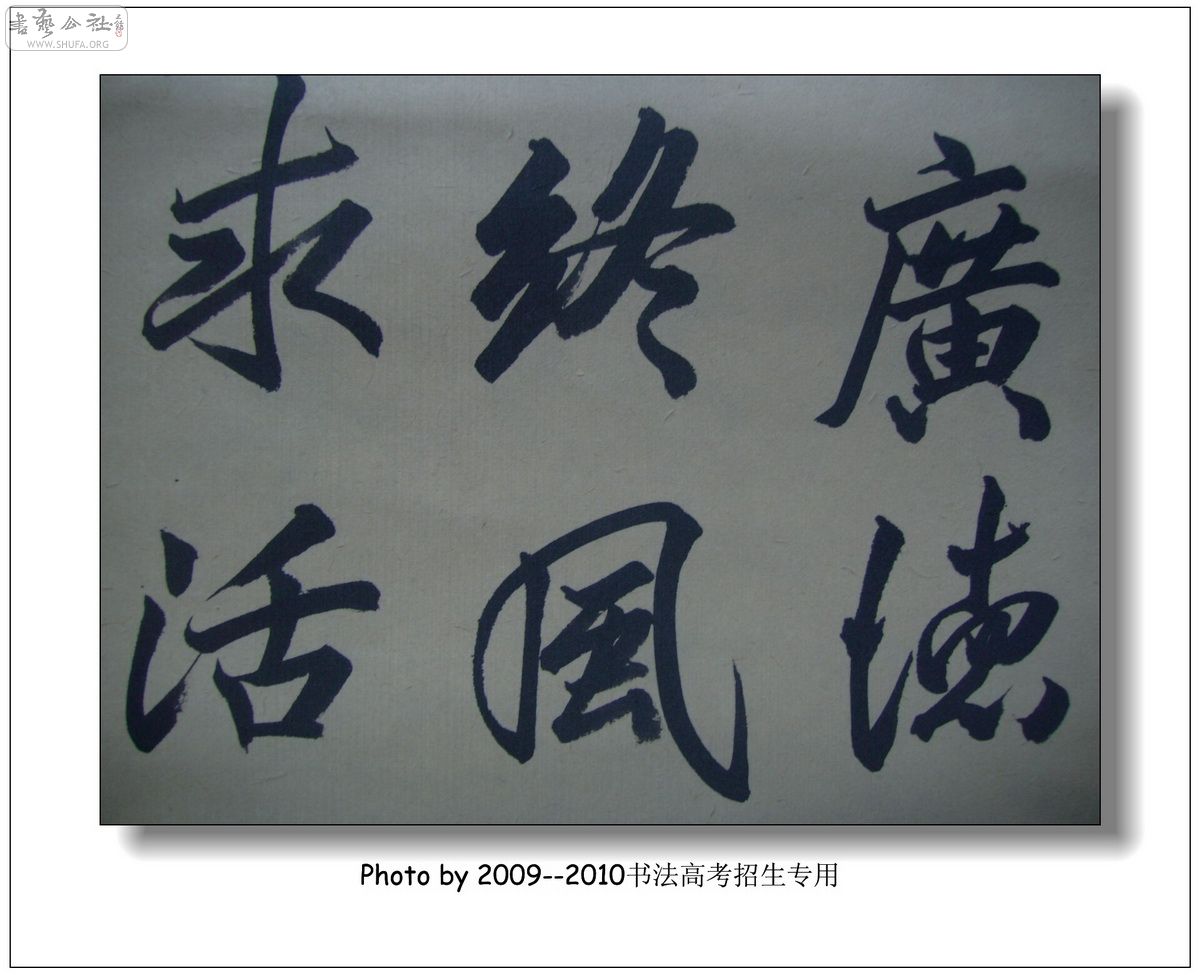 書藝公社
WWW.SHUFA.ORG
廣德
終風
求活
Photo by 2009--2010书法高考招生专用